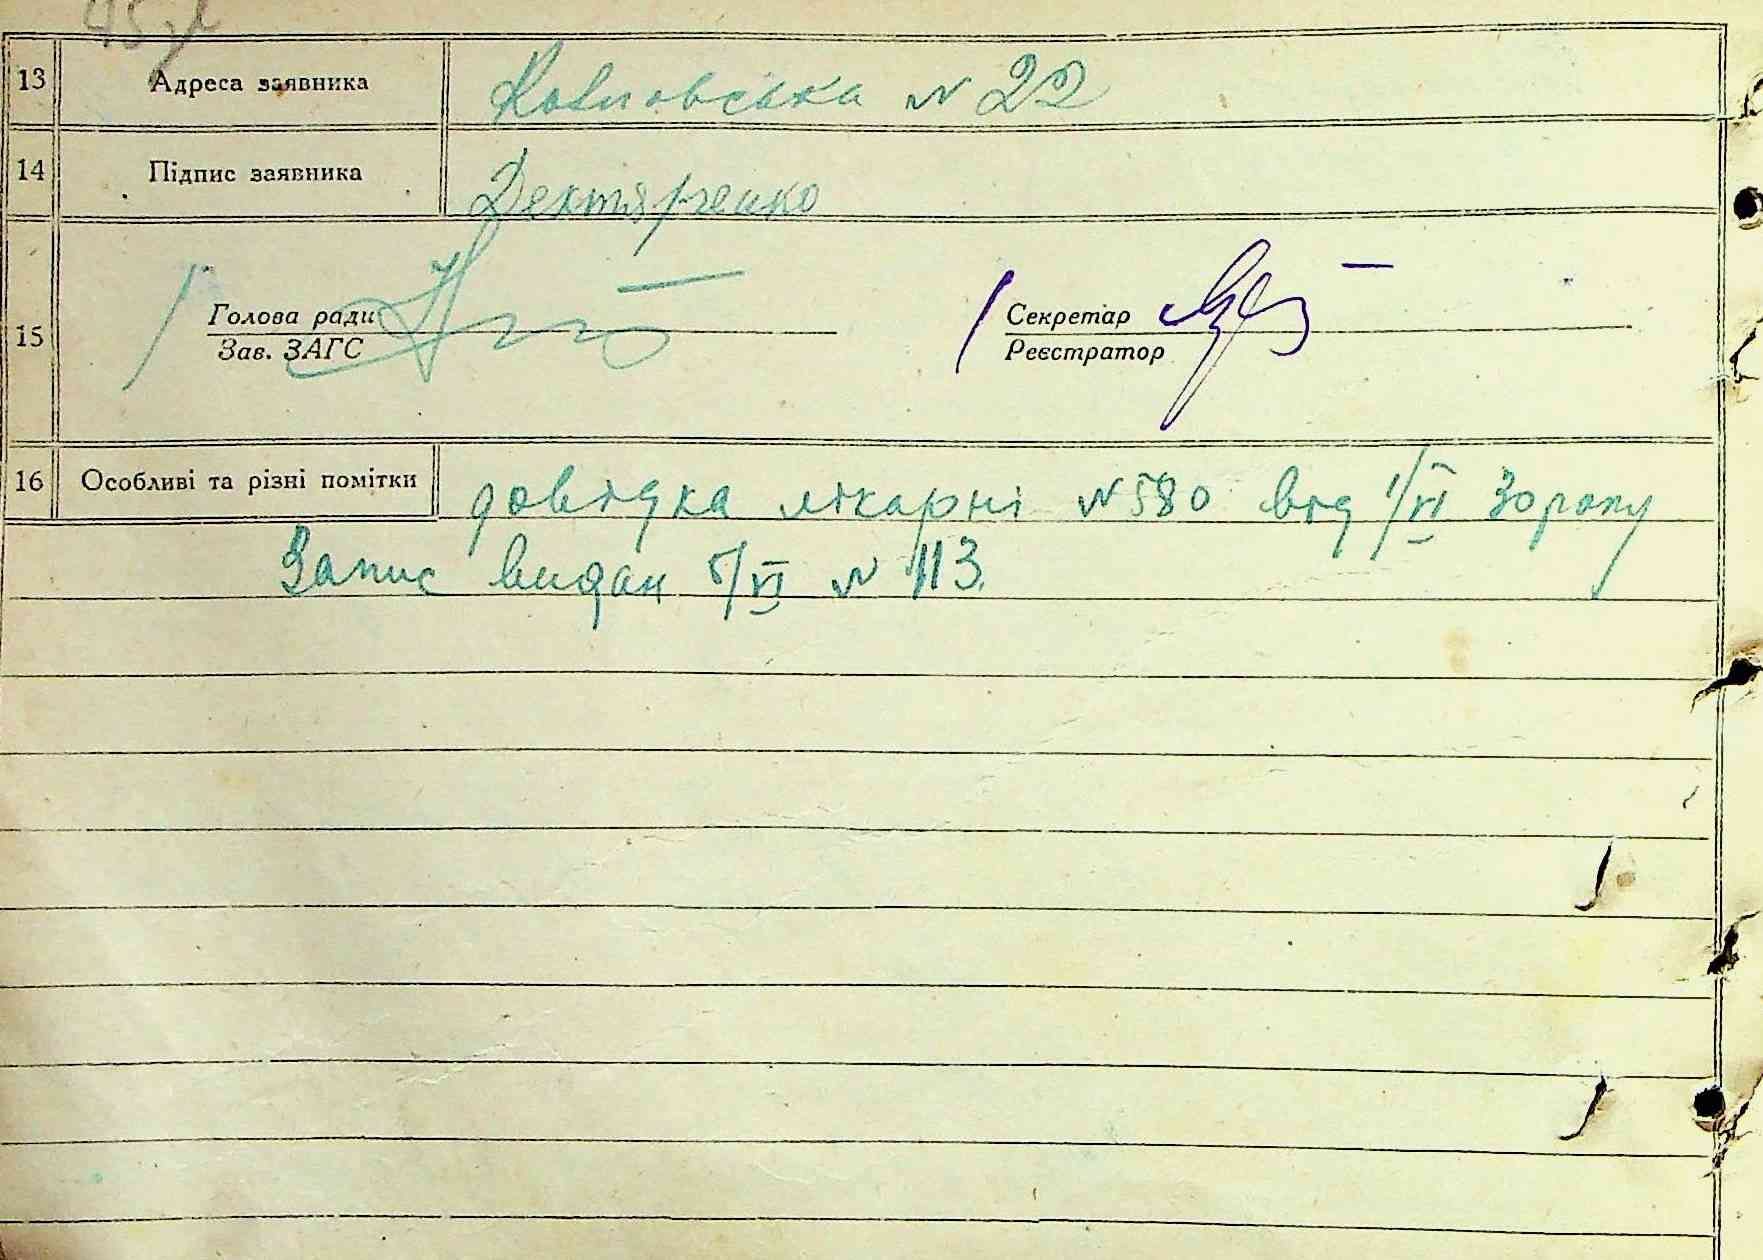 13 Адреса заявника № 22
14 Підпис заявника Дехтяренко
15 Голова ради Секретар
Зав. ЗАГС Реєстратор
16 Особливі та різні помітки довідка лікарні №580 від 1/VI 30 року
Запис видан 5/VI № 113.